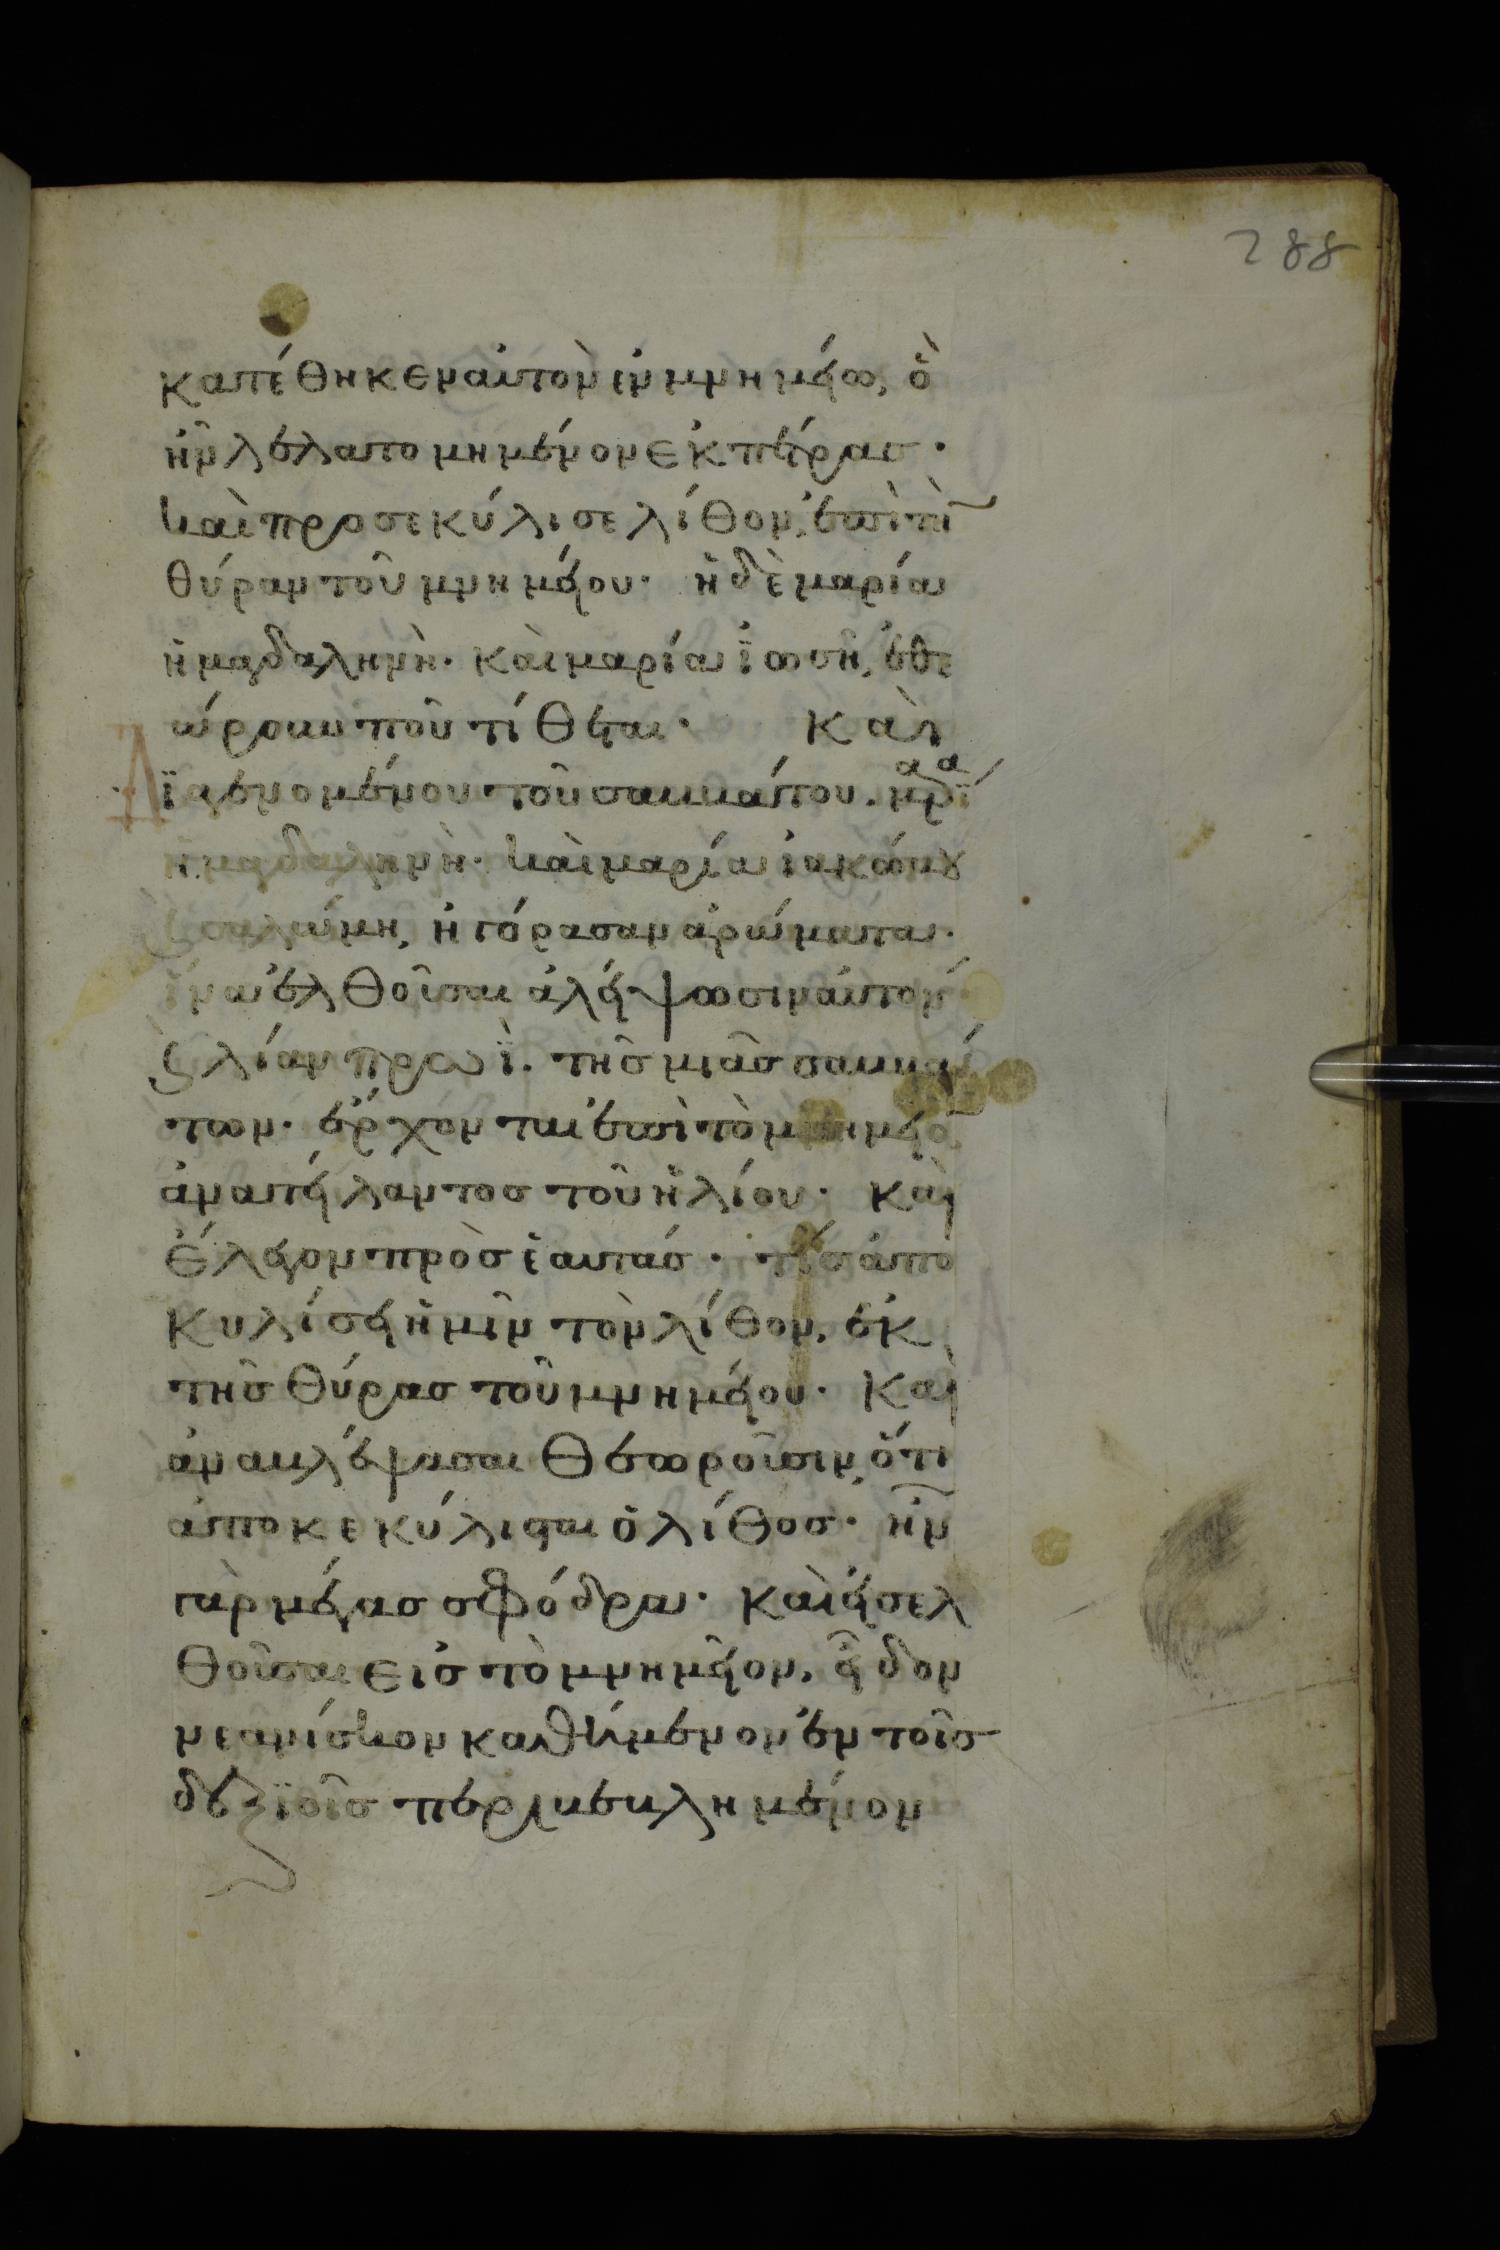 288
κατέθηκεν αὐτὸν ἐν μνημείω, ὃ
ἦν λελατομημένον ἐκ πέτρας·
καὶ προσεκύλισε λίθον, ἐπὶ τὴ
θύραν τοῦ μνημείου· ἡ δὲ μαρία
ἡ μαγδαληνὴ· καὶ μαρία ϊωσῆ, ἐθε
ώρουν ποῦ τίθεται· Καὶ
Δϊαγενομένου τοῦ σαββάτου. μαρία
ἡ μαγδαληνὴ· καὶ μαρία ἰακώβου
ϛ σαλώμη, ἠγόρασαν ἀρώματα·
ἵνα ἐλθοῦσαι ἀλείψωσιν αὐτόν·
ϛ λίαν πρωῒ. τῆς μιᾶς σαββά
των· ἔρχονται ἐπὶ τὸ μνημεῖο
ἀνατείλαντος τοῦ ἡλίου· καὶ
ἔλεγον πρὸς ἑαυτάς· τίς ἀπο
κυλίσει ἡμῖν τὸν λίθον, ἐκ
τῆς θύρας τοῦ μνημείου· Καὶ
ἀναβλέψασαι θεωροῦσιν, ὅτι
ἀποκεκύλισται ὁ λίθος· ἦν
γὰρ μέγας σφόδρα· καὶ εἰσελ
θοῦσαι εἰς τὸ μνημεῖον, εἶδον
νεανίσκον καθήμενον ἐν τοῖς
δεξϊοῖς περιβεβλημένον